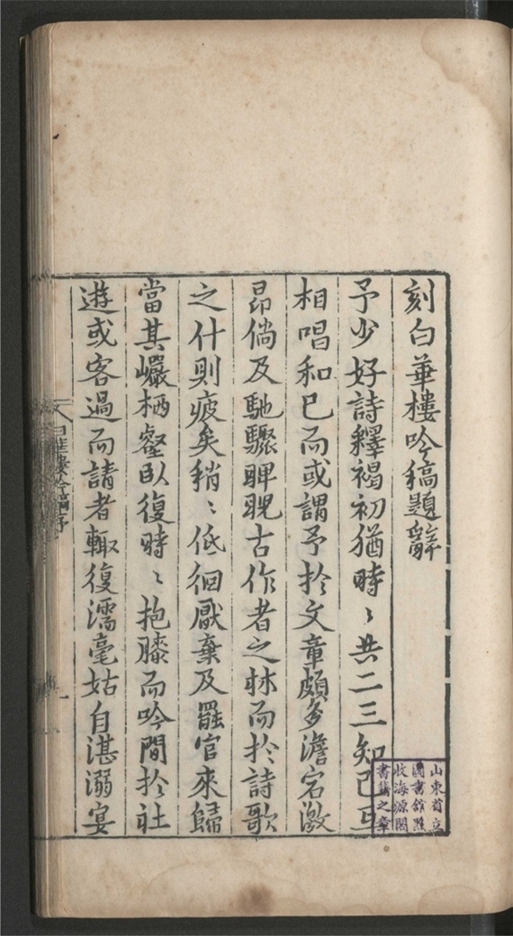 刻白華樓吟稿題辭
予少好詩釋褐初猶時〻共二三知己互
相唱和已而或謂予扵文章頗多澹宕激
昂倘及馳驟睥睨古作者之林而扵詩歌
之什則疲矣稍〻低徊厭棄及罷官來歸
當其巖栖壑臥復時〻抱膝而吟間扵社
遊或客過而請者輙復濡毫姑自湛溺宴
白華樓吟稿序
山東省立
圖書館點
收海源閣
書籍之章